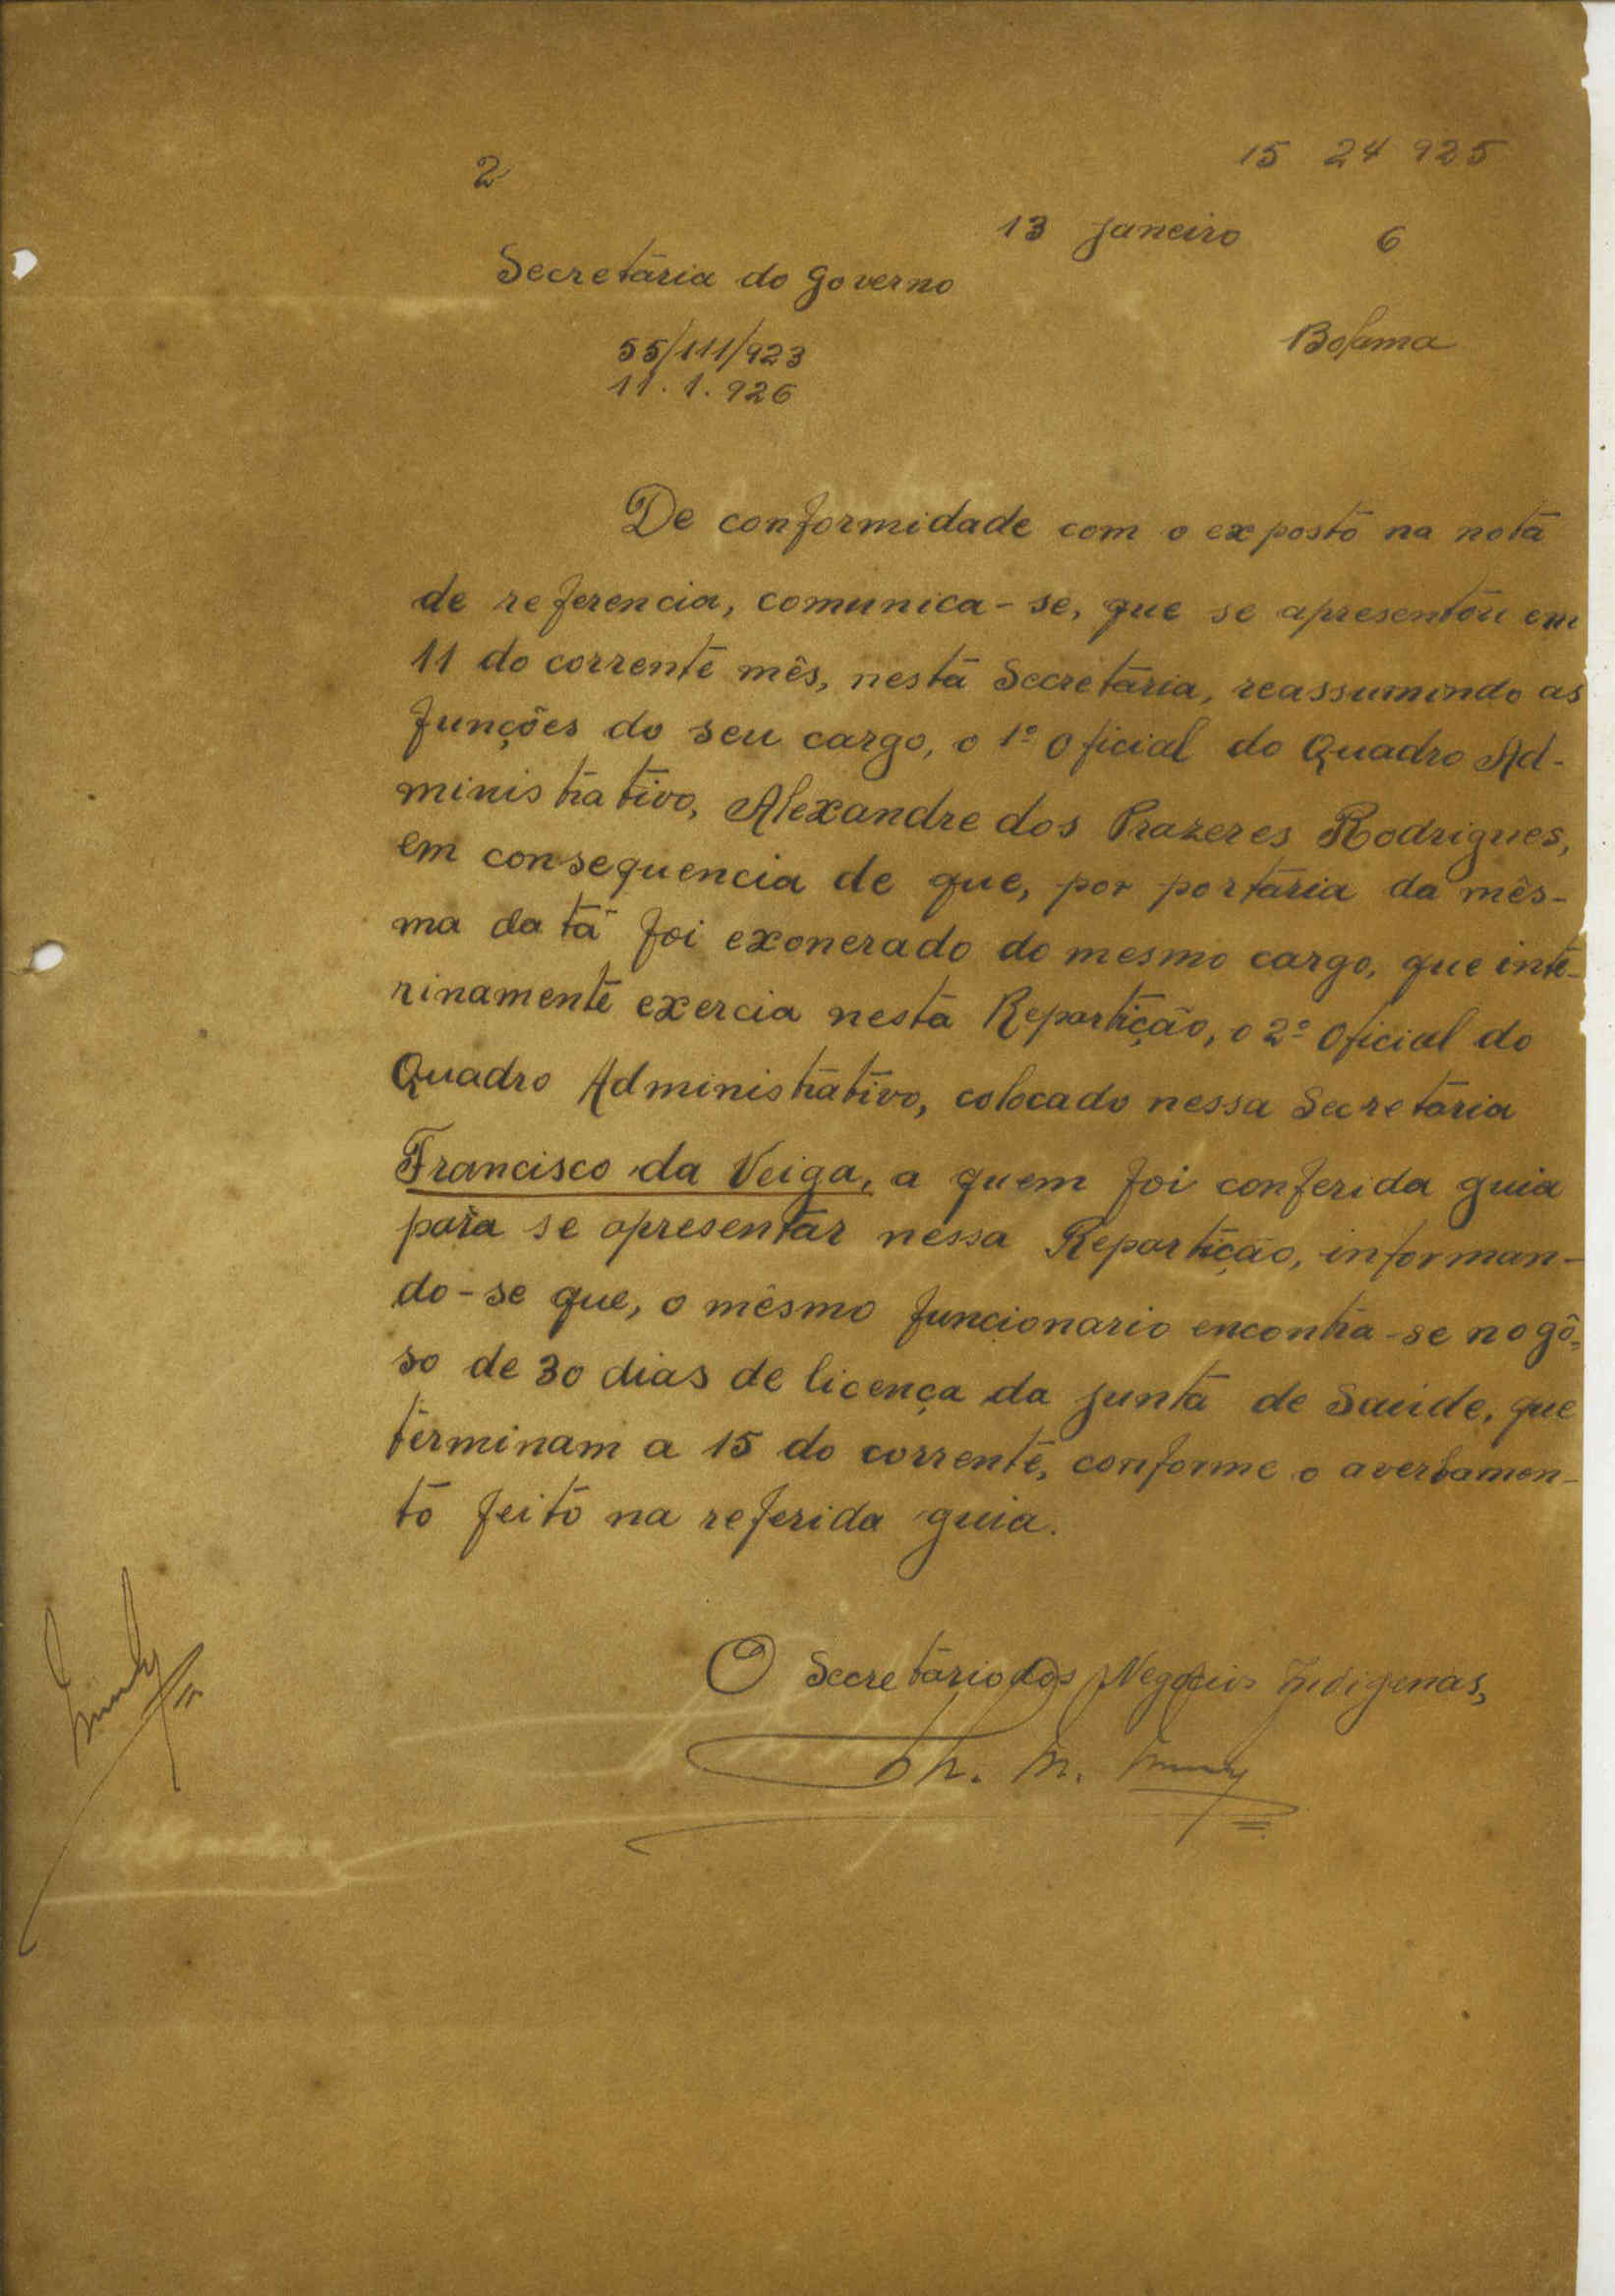 2
15 24 925
13 Janeiro 6
Secretária do Governo
Bolama
55/111/923
11. 1. 926
De conformidade com o exposto na nota
de referencia, comunica-se, que se apresentou em
11 do corrente mês, nesta Secretaria, reassumindo as
funções do seu cargo, o 1º Oficial do Quadro Ad-
ministrativo, Alexandre dos Prazeres Rodrigues,
em consequencia de que, por portaria da mês-
ma data foi exonerado do mesmo cargo, que inte-
rinamente exercia nesta Repartição, o 2º Oficial do
Quadro Administrativo, colocado nessa Secretaria
Francisco da Veiga, a quem foi conferida guia
para se apresentar nessa Repartição, informan-
do-se que, o mêsmo funcionario encontra-se no gô-
so de 30 dias de licença da Junta de Saúde, que
terminam a 15 do corrente, conforme o averbamen-
to feito na referida guia.
O Secretário dos Negocios Indigenas,